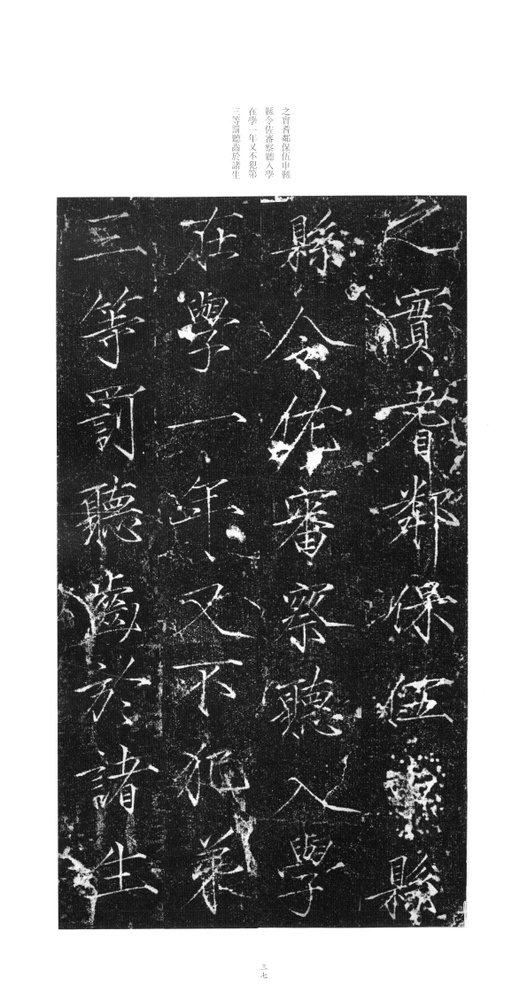 之實者鄰保伍申縣
縣令佐審察聽入學
在學一年又不犯第
三等罰聽齒於諸生
之實者鄰保伍申縣
縣令佐審察聽入學
在學一年又不犯第
三等罰聽齒於諸生
三七